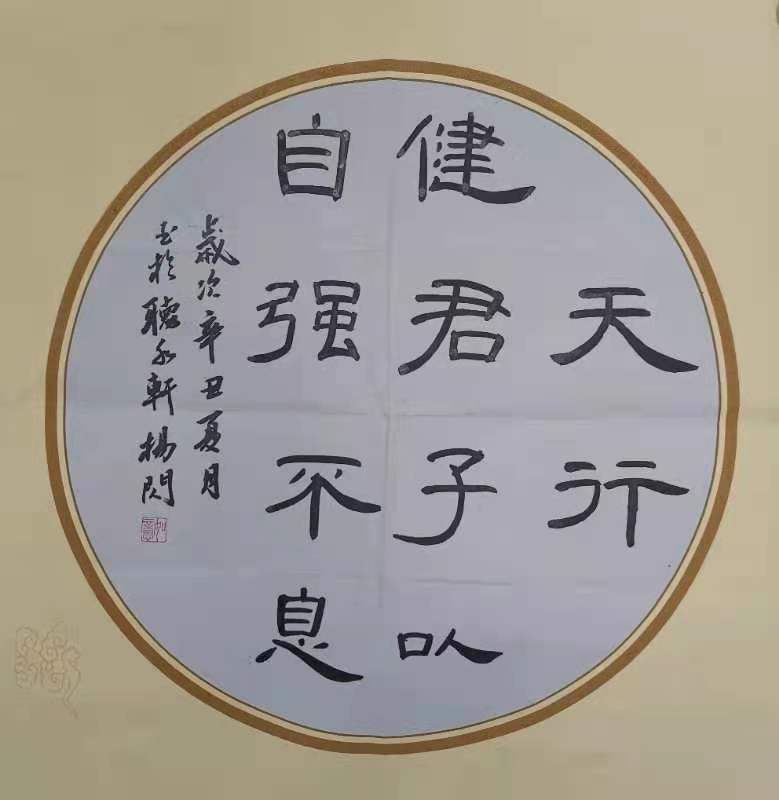 天行
健君子以
自强不息
歲次辛丑夏月
書於聽水軒楊閃